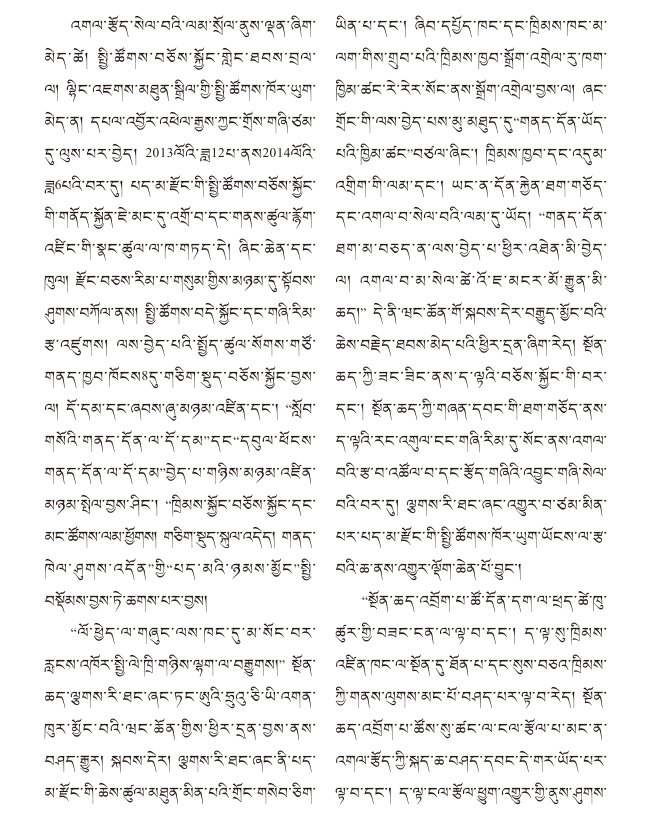 འགལ་རྩོད་སེལ་བའི་ལམ་སྲོལ་ནུས་ལྡན་ཞིག་
མེད་ཚེ། སྤྱི་ཚོགས་བཅོས་སྐྱོང་གླེང་ཐབས་བྲལ་
ལ། ལྷིང་འཇགས་མཐུན་སྒྲིལ་གྱི་སྤྱི་ཚོགས་ཁོར་ཡུག་
མེད་ན། དཔལ་འབྱོར་འཕེལ་རྒྱས་ཀྱང་གྲོས་གཞི་ཙམ་
དུ་ལུས་པར་བྱེད། 2013ལོའི་ཟླ12པ་ནས2014ལོའི་
ཟླ6པའི་བར་དུ། པད་མ་རྫོང་གི་སྤྱི་ཚོགས་བཅོས་སྐྱོང་
གི་གནོད་སྐྱོན་ཇེ་མང་དུ་འགྲོ་བ་དང་གནས་ཚུལ་རྙོག་
འཛིང་གི་སྣང་ཚུལ་ལ་ཁ་གཏད་དེ། ཞིང་ཆེན་དང་
ཁུལ། རྫོང་བཅས་རིམ་པ་གསུམ་གྱིས་མཉམ་དུ་སྟོབས་
ཤུགས་བཀོལ་ནས། སྤྱི་ཚོགས་བདེ་སྐྱོང་དང་གཞི་རིམ་
རྩ་འཛུགས། ལས་བྱེད་པའི་སྤྱོད་ཚུལ་སོགས་གཙོ་
གནད་ཁྱབ་ཁོངས8དུ་གཅིག་སྡུད་བཅོས་སྐྱོང་བྱས་
ལ། དོ་དམ་དང་ཞབས་ཞུ་མཉམ་འཛིན་དང་། “སློབ་
གསོའི་གནད་དོན་ལ་དོ་དམ”དང་“དབུལ་ཕོངས་
གནད་དོན་ལ་དོ་དམ”བྱེད་པ་གཉིས་མཉམ་འཛིན་
མཉམ་སྤེལ་བྱས་ཤིང་། “ཁྲིམས་སྐྱོང་བཅོས་སྐྱོང་དང་
མང་ཚོགས་ལམ་ཕྱོགས། གཅིག་སྡུད་སྐུལ་འདེད། གནད་
ཁེལ་ཤུགས་འདོན”གྱི“པད་མའི་ཉམས་མྱོང”སྤྱི་
བསྡོམས་བྱས་ཏེ་ཆགས་པར་བྱས།
“ལོ་ཕྱེད་ལ་གཞུང་ལས་ཁང་དུ་མ་སོང་བར་
རླངས་འཁོར་སྤྱི་ལེ་ཁྲི་གཉིས་ལྷག་ལ་བརྒྱུགས།” སྔོན་
ཆད་ལྕགས་རི་ཐང་ཞང་ཏང་ཨུའི་ཧྲུའུ་ཅི་ཡི་འགན་
ཁུར་མྱོང་བའི་ཝང་ཚོན་གྱིས་ཕྱིར་དྲན་བྱས་ནས་
བཤད་རྒྱུར། སྐབས་དེར། ལྕགས་རི་ཐང་ཞང་ནི་པད་
མ་རྫོང་གི་ཆེས་ཚུལ་མཐུན་མིན་པའི་གྲོང་གསེབ་ཅིག་
ཡིན་པ་དང་། ཞིབ་དཔྱོད་ཁང་དང་ཁྲིམས་ཁང་མ་
ལག་གིས་གྲུབ་པའི་ཁྲིམས་ཁྱབ་སྒྲོག་འགྲེལ་རུ་ཁག་
ཁྱིམ་ཚང་རེ་རེར་སོང་ནས་སྒྲོག་འགྲེལ་བྱས་ལ། ཞང་
གྲོང་གི་ལས་བྱེད་པས་མུ་མཐུད་དུ“གནད་དོན་ཡོད་
པའི་ཁྱིམ་ཚང”བཙལ་ཞིང་། ཁྲིམས་ཁྱབ་དང་འདུམ་
འགྲིག་གི་ལམ་དང་། ཡང་ན་དོན་རྐྱེན་ཐག་གཅོད་
དང་འགལ་བ་སེལ་བའི་ལམ་དུ་ཡོད། “གནད་དོན་
ཐག་མ་བཅད་ན་ལས་བྱེད་པ་ཕྱིར་འཐེན་མི་བྱེད་
ལ། འགལ་བ་མ་སེལ་ཚེ་འོ་ཇ་མངར་མོ་རྒྱུན་མི་
ཆད།” དེ་ནི་ཝང་ཚོན་གོ་སྐབས་དེར་བརྒྱུད་མྱོང་བའི་
ཆེས་བརྗེད་ཐབས་མེད་པའི་ཕྱིར་དྲན་ཞིག་རེད། སྔོན་
ཆད་ཀྱི་ཟང་ཟིང་ནས་ད་ལྟའི་བཅོས་སྐྱོང་གི་བར་
དང་། སྔོན་ཆད་ཀྱི་གཞན་དབང་གི་ཐག་གཅོད་ནས་
ད་ལྟའི་རང་འགུལ་ངང་གཞི་རིམ་དུ་སོང་ནས་འགལ་
བའི་རྩ་བ་འཚོལ་བ་དང་རྩོད་གཞིའི་འབྱུང་གཞི་སེལ་
བའི་བར་དུ། ལྕགས་རི་ཐང་ཞང་འགྱུར་བ་ཙམ་མིན་
པར་པད་མ་རྫོང་གི་སྤྱི་ཚོགས་ཁོར་ཡུག་ཡོངས་ལ་རྩ་
བའི་ཆ་ནས་འགྱུར་ལྡོག་ཆེན་པོ་བྱུང་།
“སྔོན་ཆད་འབྲོག་པ་ཚོ་དོན་དག་ལ་ཕྲད་ཚེ་ཁུ་
ཚུར་གྱི་བཟང་ངན་ལ་ལྟ་བ་དང་། ད་ལྟ་སུ་ཁྲིམས་
འཛིན་ཁང་ལ་སྔོན་དུ་ཐོན་པ་དང་སུས་བཅའ་ཁྲིམས་
ཀྱི་གནས་ལུགས་མང་པོ་བཤད་པར་ལྟ་བ་རེད། སྔོན་
ཆད་འབྲོག་པ་ཚོས་སུ་ཚང་ལ་ངལ་རྩོལ་པ་མང་ན་
འགལ་རྩོད་ཀྱི་སྐད་ཆ་བཤད་དབང་དེ་གར་ཡོད་པར་
ལྟ་བ་དང་། ད་ལྟ་ངལ་རྩོལ་ཕྱུག་འགྱུར་གྱི་ནུས་ཤུགས་